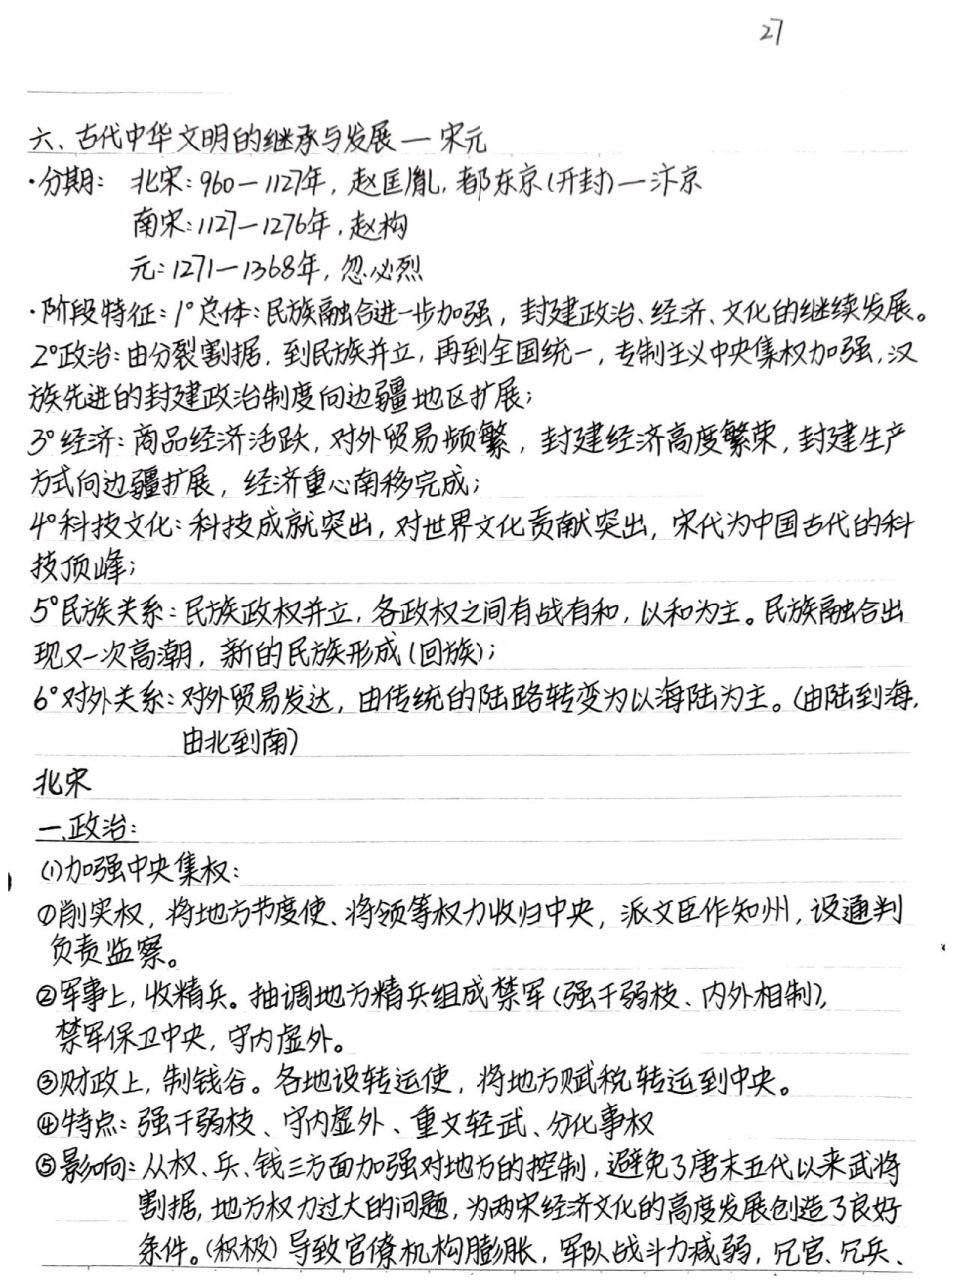 27
六、古代中华文明的继承与发展—宋元
·分期: 北宋:960—1127年,赵匡胤,都东京(开封)—汴京
南宋:1127—1276年,赵构
元:1271—1368年,忽必烈
·阶段特征:1°总体:民族融合进一步加强,封建政治、经济、文化的继续发展。
2°政治:由分裂割据,到民族并立,再到全国统一,专制主义中央集权加强,汉
族先进的封建政治制度向边疆地区扩展;
3°经济:商品经济活跃,对外贸易频繁,封建经济高度繁荣,封建生产
方式向边疆扩展,经济重心南移完成;
4°科技文化:科技成就突出,对世界文化贡献突出,宋代为中国古代的科
技顶峰;
5°民族关系:民族政权并立,各政权之间有战有和,以和为主。民族融合出
现又一次高潮,新的民族形成(回族);
6°对外关系:对外贸易发达,由传统的陆路转变为以海陆为主。(由陆到海,
由北到南)
北宋
一.政治:
(1)加强中央集权:
①削实权,将地方节度使、将领等权力收归中央,派文臣作知州,设通判
负责监察。
②军事上,收精兵。抽调地方精兵组成禁军(强干弱枝、内外相制),
禁军保卫中央,守内虚外。
③财政上,制钱谷。各地设转运使,将地方赋税转运到中央。
④特点:强干弱枝、守内虚外、重文轻武、分化事权
⑤影响:从权、兵、钱三方面加强对地方的控制,避免了唐末五代以来武将
割据,地方权力过大的问题,为两宋经济文化的高度发展创造了良好
条件。(积极)导致官僚机构膨胀,军队战斗力减弱,冗官、冗兵、